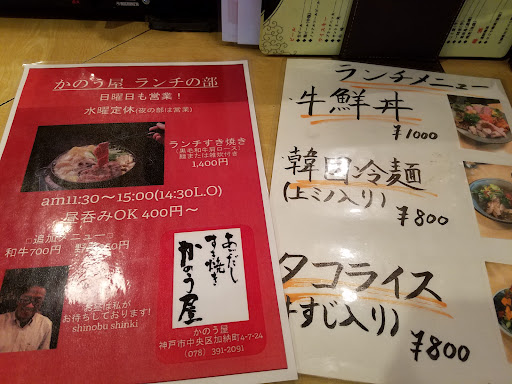 かのう屋 ランチの部
日曜日も営業！
水曜定休(夜の部は営業)
ランチすき焼き
(黒毛和牛肩ロース)
麺または雑炊付き
1,400円
am11:30〜15:00(14:30L.O)
昼呑みOK 400円〜
□追加メニュー□
和牛700円
お昼は私が
お待ちしております!
shinobu shinki
あごだし
すき焼き
かのう屋
かのう屋
神戸市中央区加納町4-7-24
(078) 391-2091
ランチメニュー
牛鮮丼
¥1000
韓国冷麺
(上ミノ入り)
¥800
タコライス
牛すじ入り)
¥800